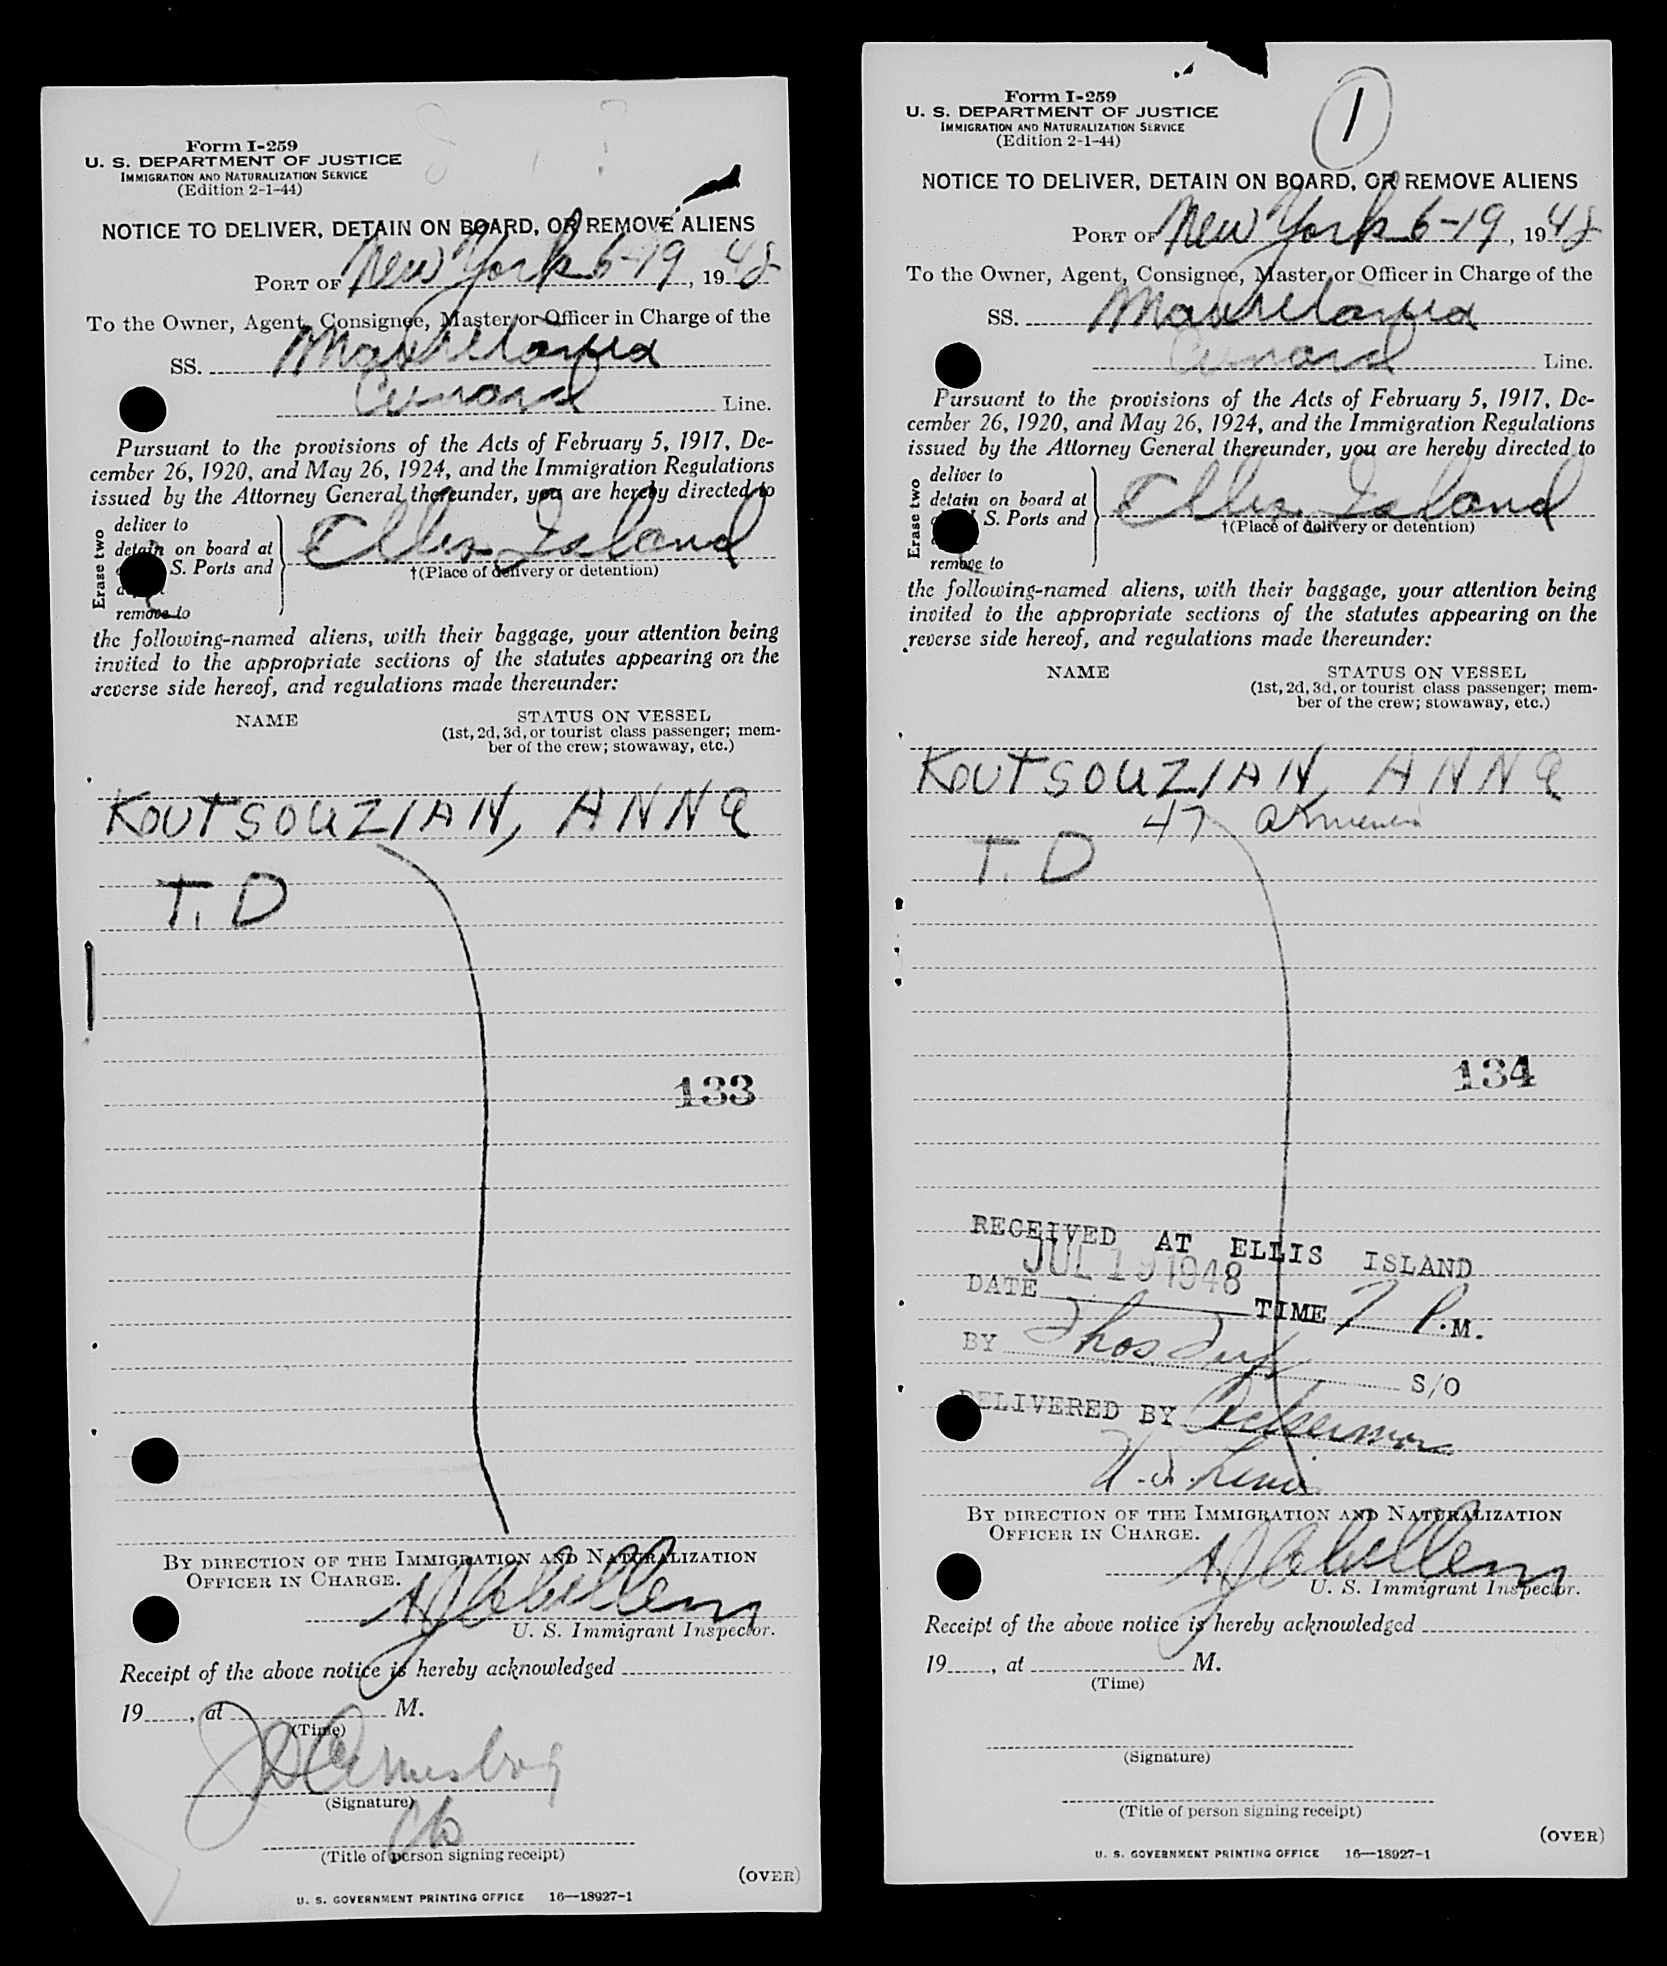 Form I-259
U. S. DEPARTMENT OF JUSTICE
IMMIGRATION AND NATURALIZATION SERVICE
(Edition 2-1-44)
NOTICE TO DELIVER, DETAIN ON BOARD, OR REMOVE ALIENS
PORT OF New York 6-19, 1948
To the Owner, Agent, Consignee, Master or Officer in Charge of the
SS. Mauretania
Cunard Line.
Pursuant to the provisions of the Acts of February 5, 1917, De-
cember 26, 1920, and May 26, 1924, and the Immigration Regulations
issued by the Attorney General thereunder, you are hereby directed to
Erase two
deliver to
detain on board at
S. Ports and
remove to
Ellis Island
†(Place of delivery or detention)
the following-named aliens, with their baggage, your attention being
invited to the appropriate sections of the statutes appearing on the
reverse side hereof, and regulations made thereunder:
NAME
STATUS ON VESSEL
(1st, 2d, 3d, or tourist class passenger; mem-
ber of the crew; stowaway, etc.)
KOUTSOUZIAN, ANNA
T. D
133
BY DIRECTION OF THE IMMIGRATION AND NATURALIZATION
OFFICER IN CHARGE.
U. S. Immigrant Inspector.
Receipt of the above notice is hereby acknowledged
19, at M.
(Time)
(Signature)
(Title of person signing receipt)
(OVER)
U. S. GOVERNMENT PRINTING OFFICE 16—18927-1
Form I-259
U. S. DEPARTMENT OF JUSTICE
IMMIGRATION AND NATURALIZATION SERVICE
(Edition 2-1-44)
1
NOTICE TO DELIVER, DETAIN ON BOARD, OR REMOVE ALIENS
PORT OF New York 6-19, 1948
To the Owner, Agent, Consignee, Master or Officer in Charge of the
SS. Mauretania
Cunard Line.
Pursuant to the provisions of the Acts of February 5, 1917, De-
cember 26, 1920, and May 26, 1924, and the Immigration Regulations
issued by the Attorney General thereunder, you are hereby directed to
Erase two
deliver to
detain on board at
S. Ports and
remove to
Ellis Island
†(Place of delivery or detention)
the following-named aliens, with their baggage, your attention being
invited to the appropriate sections of the statutes appearing on the
reverse side hereof, and regulations made thereunder:
NAME
STATUS ON VESSEL
(1st, 2d, 3d, or tourist class passenger; mem-
ber of the crew; stowaway, etc.)
KOUTSOUZIAN, ANNA
47 Armenia
T. D
134
RECEIVED AT ELLIS ISLAND
JUL 19 1948
DATE TIME 7 P.M.
BY Thos S/O
DELIVERED BY Ackerman
BY DIRECTION OF THE IMMIGRATION AND NATURALIZATION
OFFICER IN CHARGE.
U. S. Immigrant Inspector.
Receipt of the above notice is hereby acknowledged
19, at M.
(Time)
(Signature)
(Title of person signing receipt)
(OVER)
U. S. GOVERNMENT PRINTING OFFICE 16—18927-1